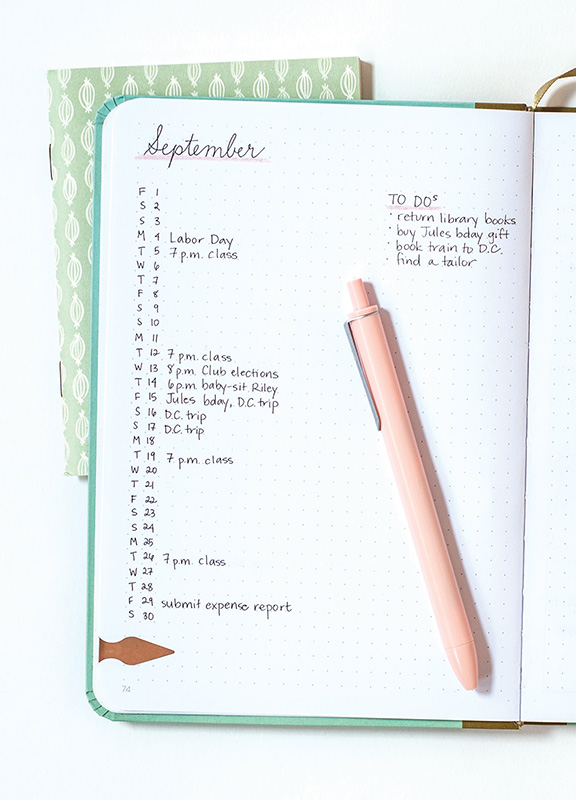 September
F 1
S 2
S 3
M 4 Labor Day
T 5 7 p.m. class
W 6
T 7
F 8
S 9
S 10
M 11
T 12 7 p.m. class
W 13 8 p.m. Club elections
T 14 6 p.m. baby-sit Riley
F 15 Jules bday, D.C. trip
S 16 D.C. trip
S 17 D.C. trip
M 18
T 19 7 p.m. class
W 20
T 21
F 22
S 23
S 24
M 25
T 26 7 p.m. class
W 27
T 28
F 29 submit expense report
S 30
TO DOs
· return library books
· buy Jules bday gift
· book train to D.C.
· find a tailor
74